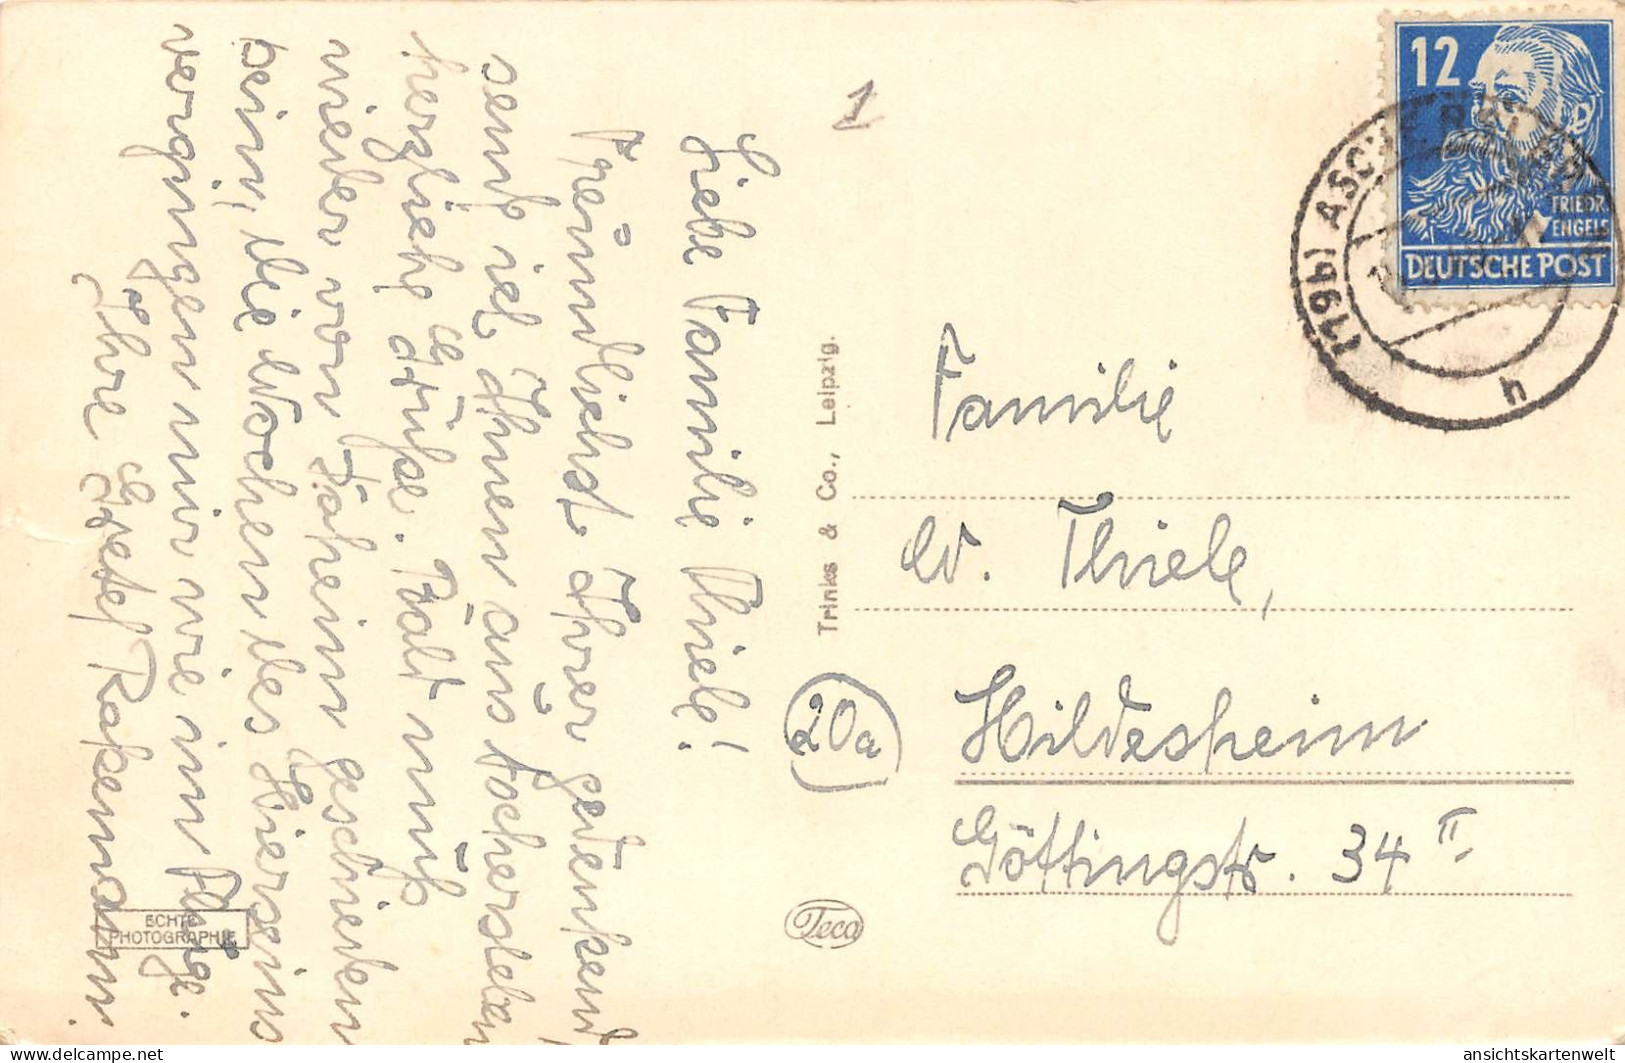 Liebe Familie Thiele!
Freundlichst Ihrer gedenkend
sende ich Ihnen aus Aschersleben
herzliche Grüße. Bald muß
wieder von Daheim geschieden
sein, die Wochen des Hierseins
vergingen mir wie im Fluge.
Ihre Gretel Rakemann.
1
12
FRIEDR.
ENGELS
DEUTSCHE POST
(19b) ASCHERSLEBEN
h
Familie
W. Thiele,
20a
Hildesheim
Göttingstr. 34 II
Trinks & Co., Leipzig.
Teca
ECHTE
PHOTOGRAPHIE
www.delcampe.net
ansichtskartenwelt